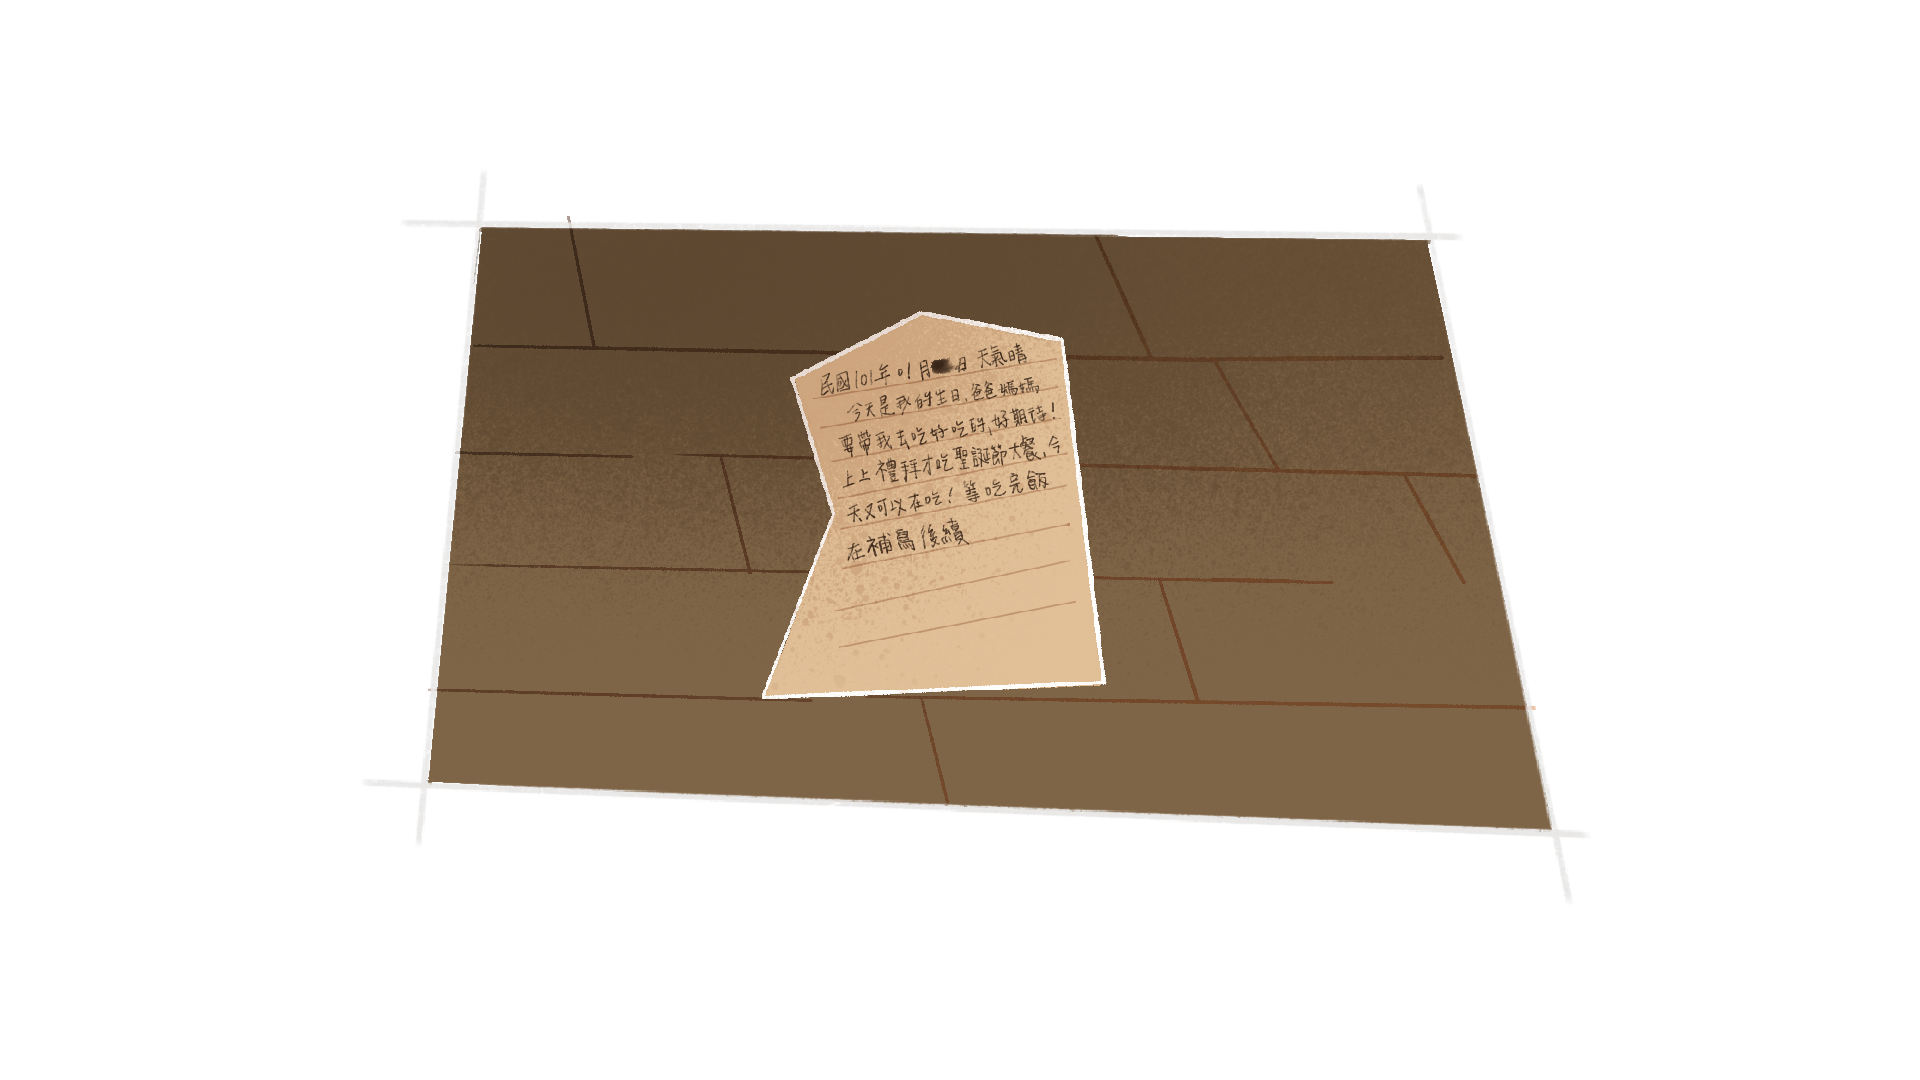 民國101年01月 日 天氣晴
今天是我的生日,爸爸媽媽
要帶我去吃好吃的,好期待!
上上禮拜才吃聖誕節大餐,今
天又可以在吃!等吃完飯
在補寫後續